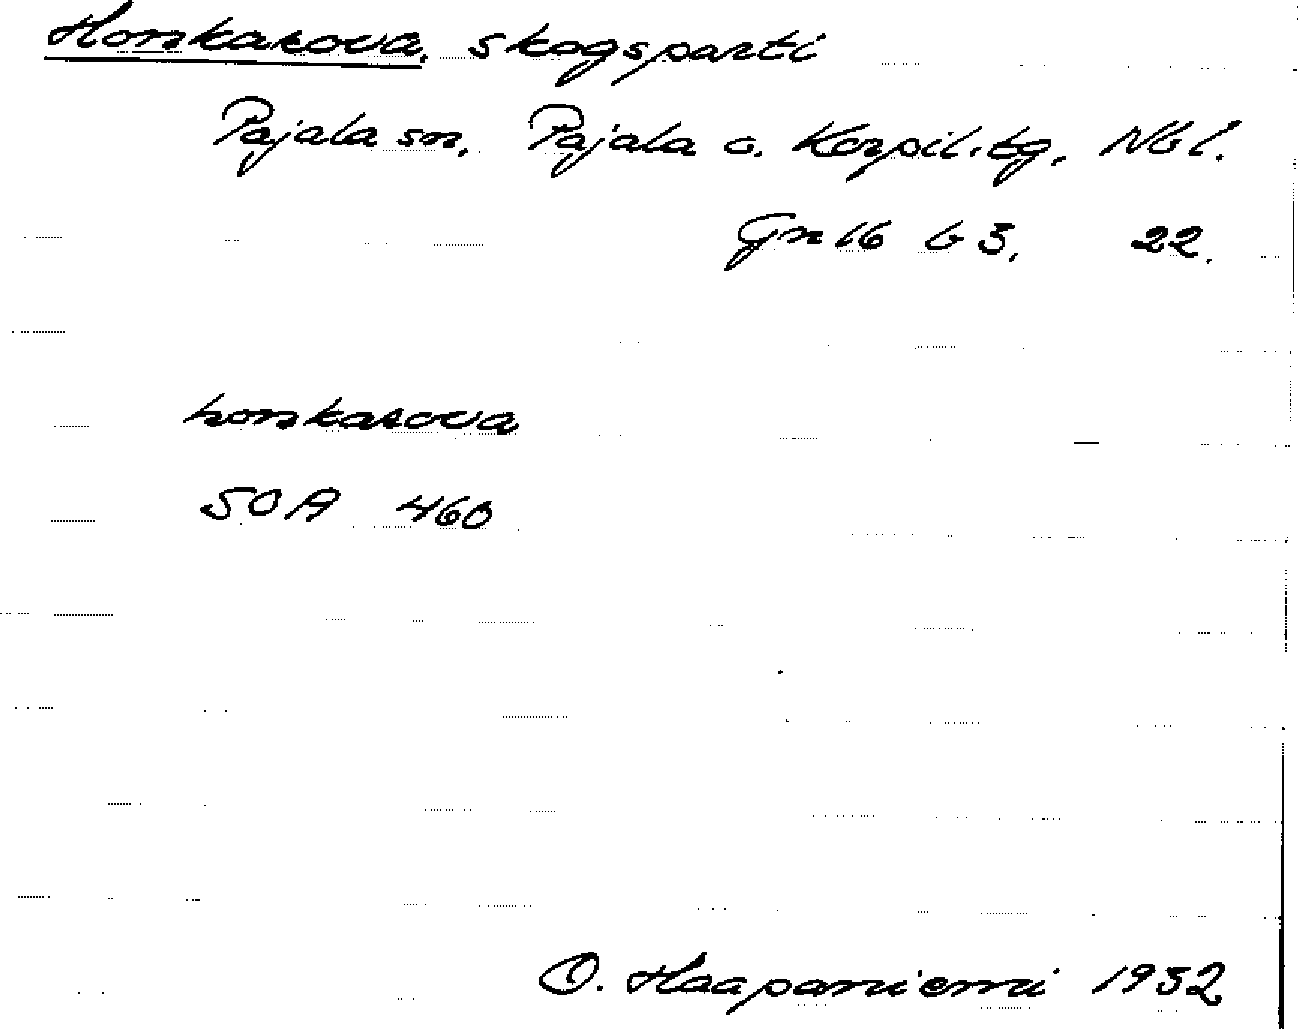 Honkarova, skogsparti
Pajala sn, Pajala o. Korpil. tg, Nbl.
Gn 16 b 3, 22.
honkarova
SOA 460
O. Haapaniemi 1932